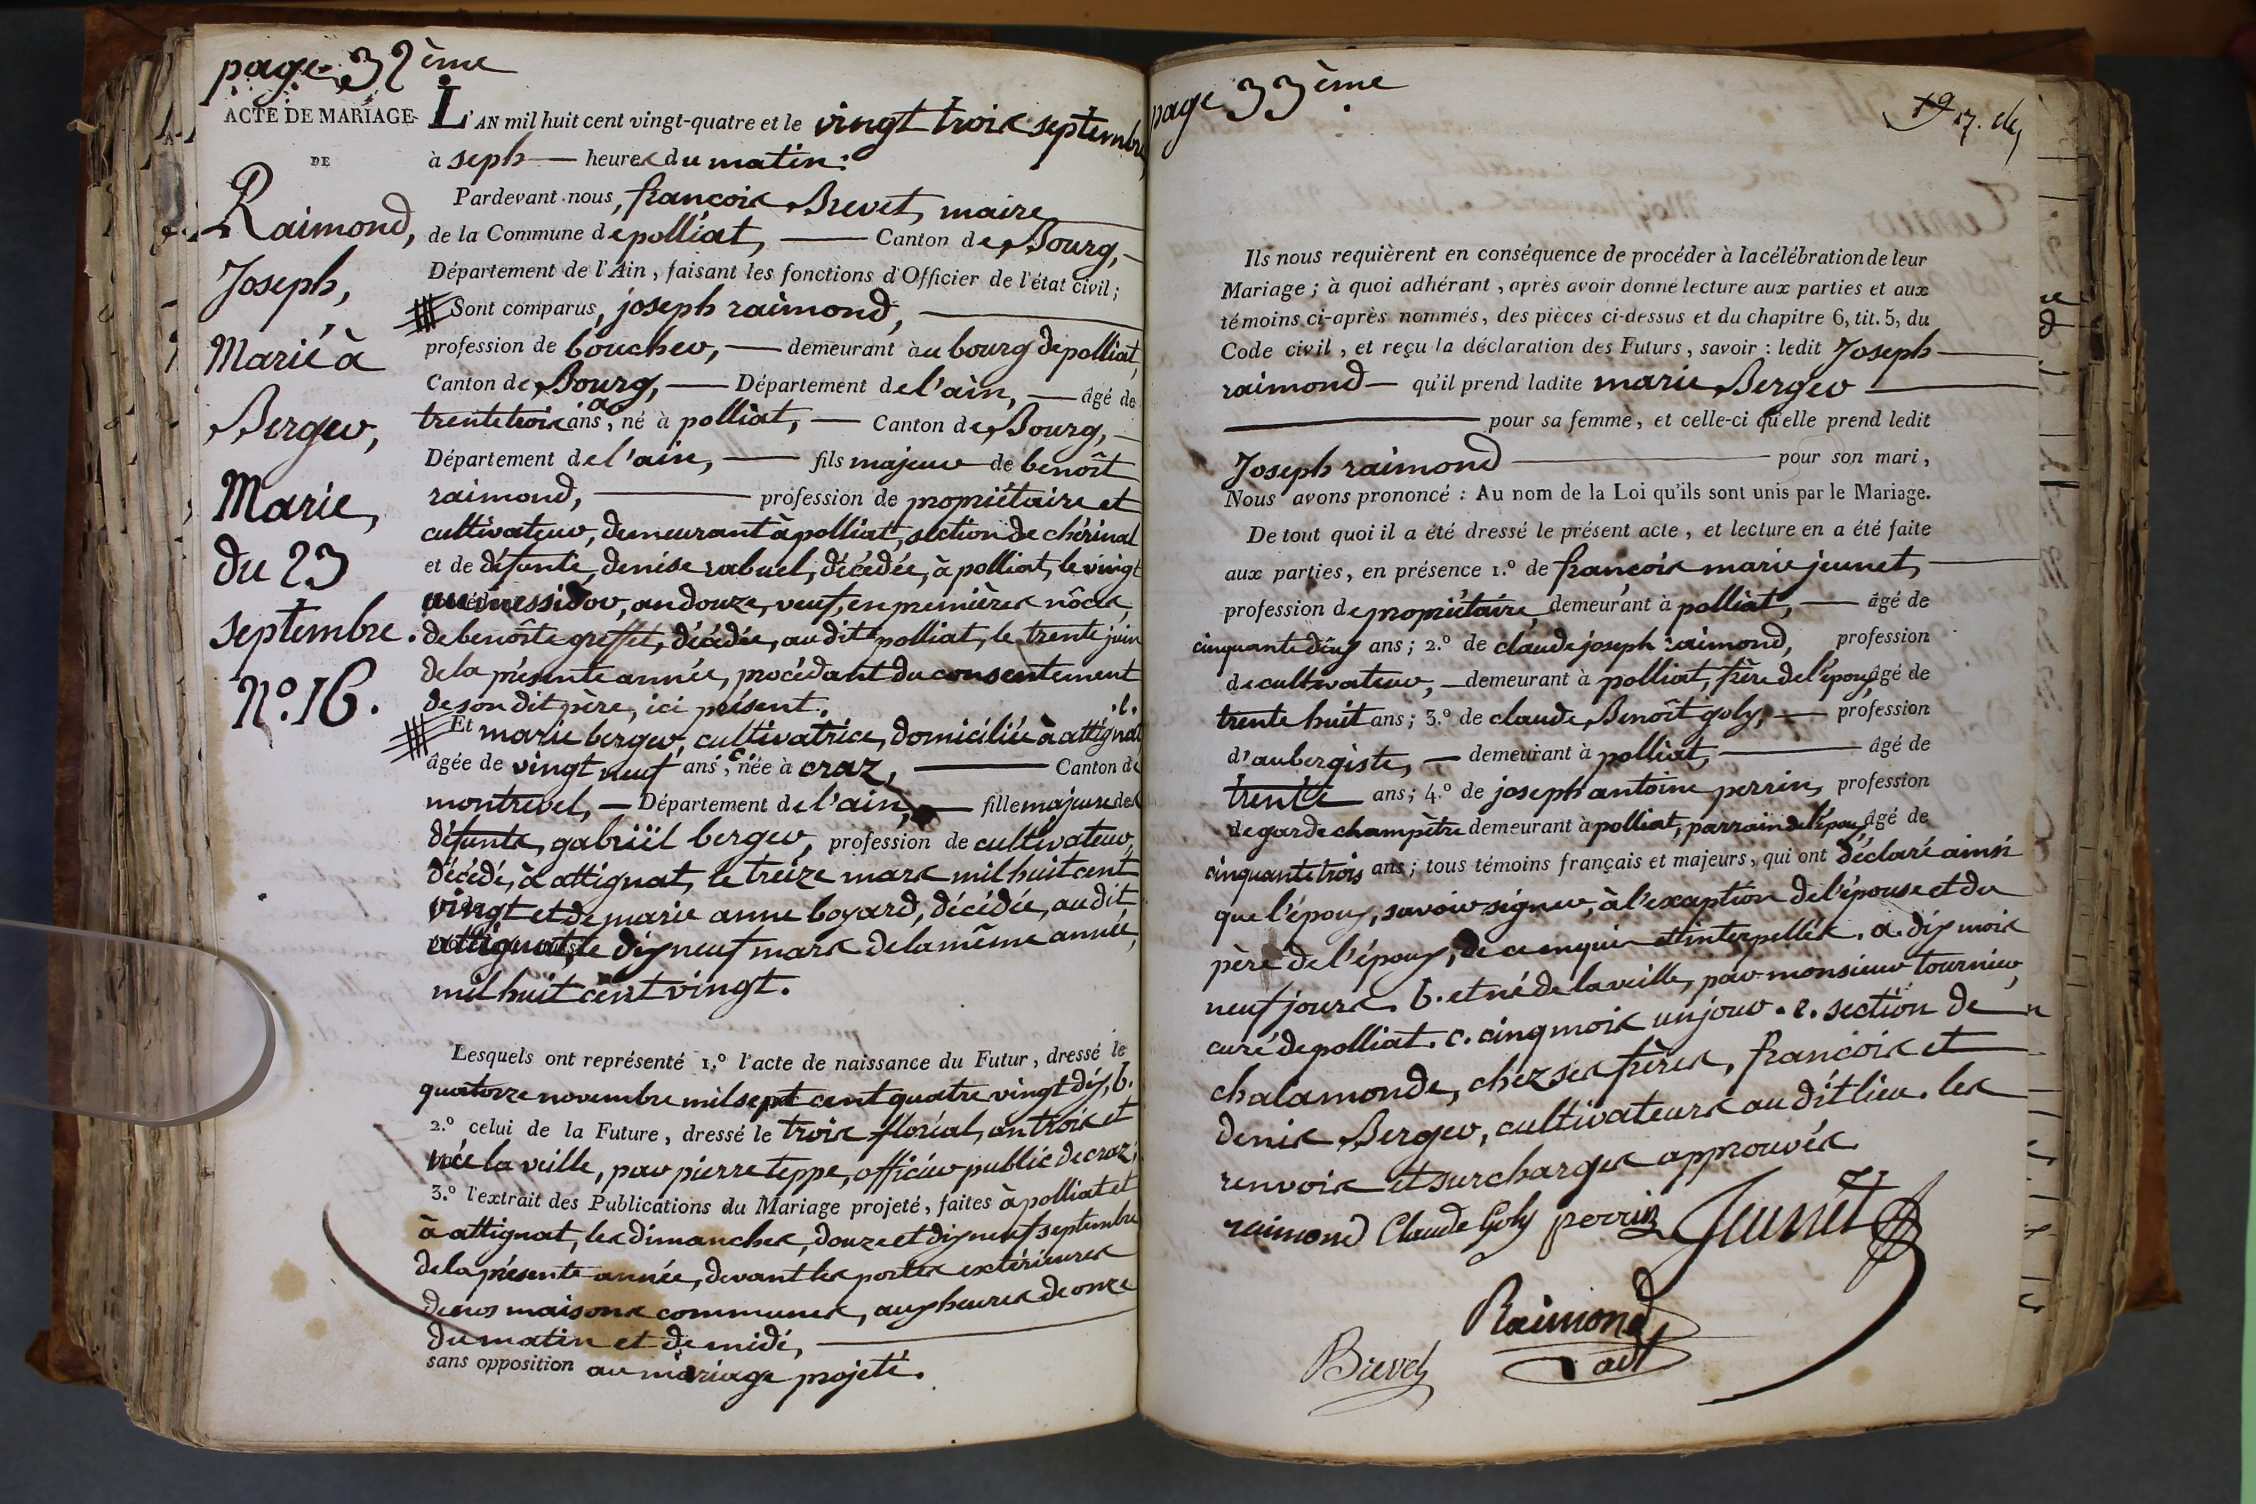 page 32ème
ACTE DE MARIAGE
DE
Raimond,
Joseph,
Marié à
Berger,
Marie,
du 23
septembre.
N.o 16.
L'AN mil huit cent vingt-quatre et le vingt trois septembre
à seph — heures du matin.
Pardevant nous, françois Brevet, maire
de la Commune de polliat, — Canton de Bourg,
Département de l'Ain, faisant les fonctions d'Officier de l'état civil;
Sont comparus, joseph raimond,
profession de boucher, — demeurant au bourg de polliat,
Canton de Bourg, — Département de l'ain, — âgé de
trente trois ans a, né à polliat, — Canton de Bourg,
Département de l'ain, — fils majeur de benoît
raimond, — profession de propriétaire et
cultivateur, demeurant à polliat, section de chérinal
et de défunte, denise rabuel, décédée, à polliat, le vingt
messidor, an douze, veuf, en premières nôces
de benoîte greffet, décédée, audit polliat, le trente juin
de la présente année, procédant du consentement
de son dit père, ici présent. .e.
Et marie berger, cultivatrice, domiciliée à attignat
âgée de vingt neuf ans c, née à craz, — Canton de
montrevel, — Département de l'ain, — fille majeure des
défunts, gabriël berger, profession de cultivateur,
décédé, à attignat, le treize mars mil huit cent
vingt et de marie anne boyard, décédée, au dit
attignat, le dix neuf mars de la même année,
mil huit cent vingt.
Lesquels ont représenté 1.º l'acte de naissance du Futur, dressé le
quatorze novembre mil sept cent quatre vingt dix, b.
2.º celui de la Future, dressé le trois floréal, an trois et
née la veille, par pierre teppe, officier public de craz;
3.º l'extrait des Publications du Mariage projeté, faites à polliat et
à attignat, les dimanches, douze et dix neuf septembre
de la présente année, devant les portes extérieures
de nos maisons communes, aux heures de onze
du matin et de midi,
sans opposition au mariage projeté.
page 33ème
Ils nous requièrent en conséquence de procéder à la célébration de leur
Mariage; à quoi adhérant, après avoir donné lecture aux parties et aux
témoins ci-après nommés, des pièces ci-dessus et du chapitre 6, tit. 5, du
Code civil, et reçu la déclaration des Futurs, savoir: ledit Joseph
raimond — qu'il prend ladite marie Berger
— pour sa femme, et celle-ci qu'elle prend ledit
Joseph raimond — pour son mari,
Nous avons prononcé: Au nom de la Loi qu'ils sont unis par le Mariage.
De tout quoi il a été dressé le présent acte, et lecture en a été faite
aux parties, en présence 1.º de françois marie jeunet,
profession de propriétaire, demeurant à polliat, — âgé de
cinquante deux ans; 2.º de claude joseph raimond, profession
de cultivateur, — demeurant à polliat, frère de l'époux, âgé de
trente huit ans; 3.º de claude Benoît goly, — profession
d'aubergiste, — demeurant à polliat, — âgé de
trente — ans; 4.º de joseph antoine perrin, profession
de garde champètre demeurant à polliat, parrain de l'époux âgé de
cinquante trois ans; tous témoins français et majeurs, qui ont déclaré ainsi
que l'époux, savoir signer, à l'exception de l'épouse et du
père de l'époux, de ce enquis et interpellés. a. dix mois
neuf jours. b. et né de la veille, par monsieur tournier,
curé de polliat. c. cinq mois un jour. e. section de
chalamonde, chez ses frères, françois et
denis Berger, cultivateurs au dit lieu. les
renvois et surcharges approuvés.
raimond Claude Goly perrin Jeunet
Raimond
Brevet